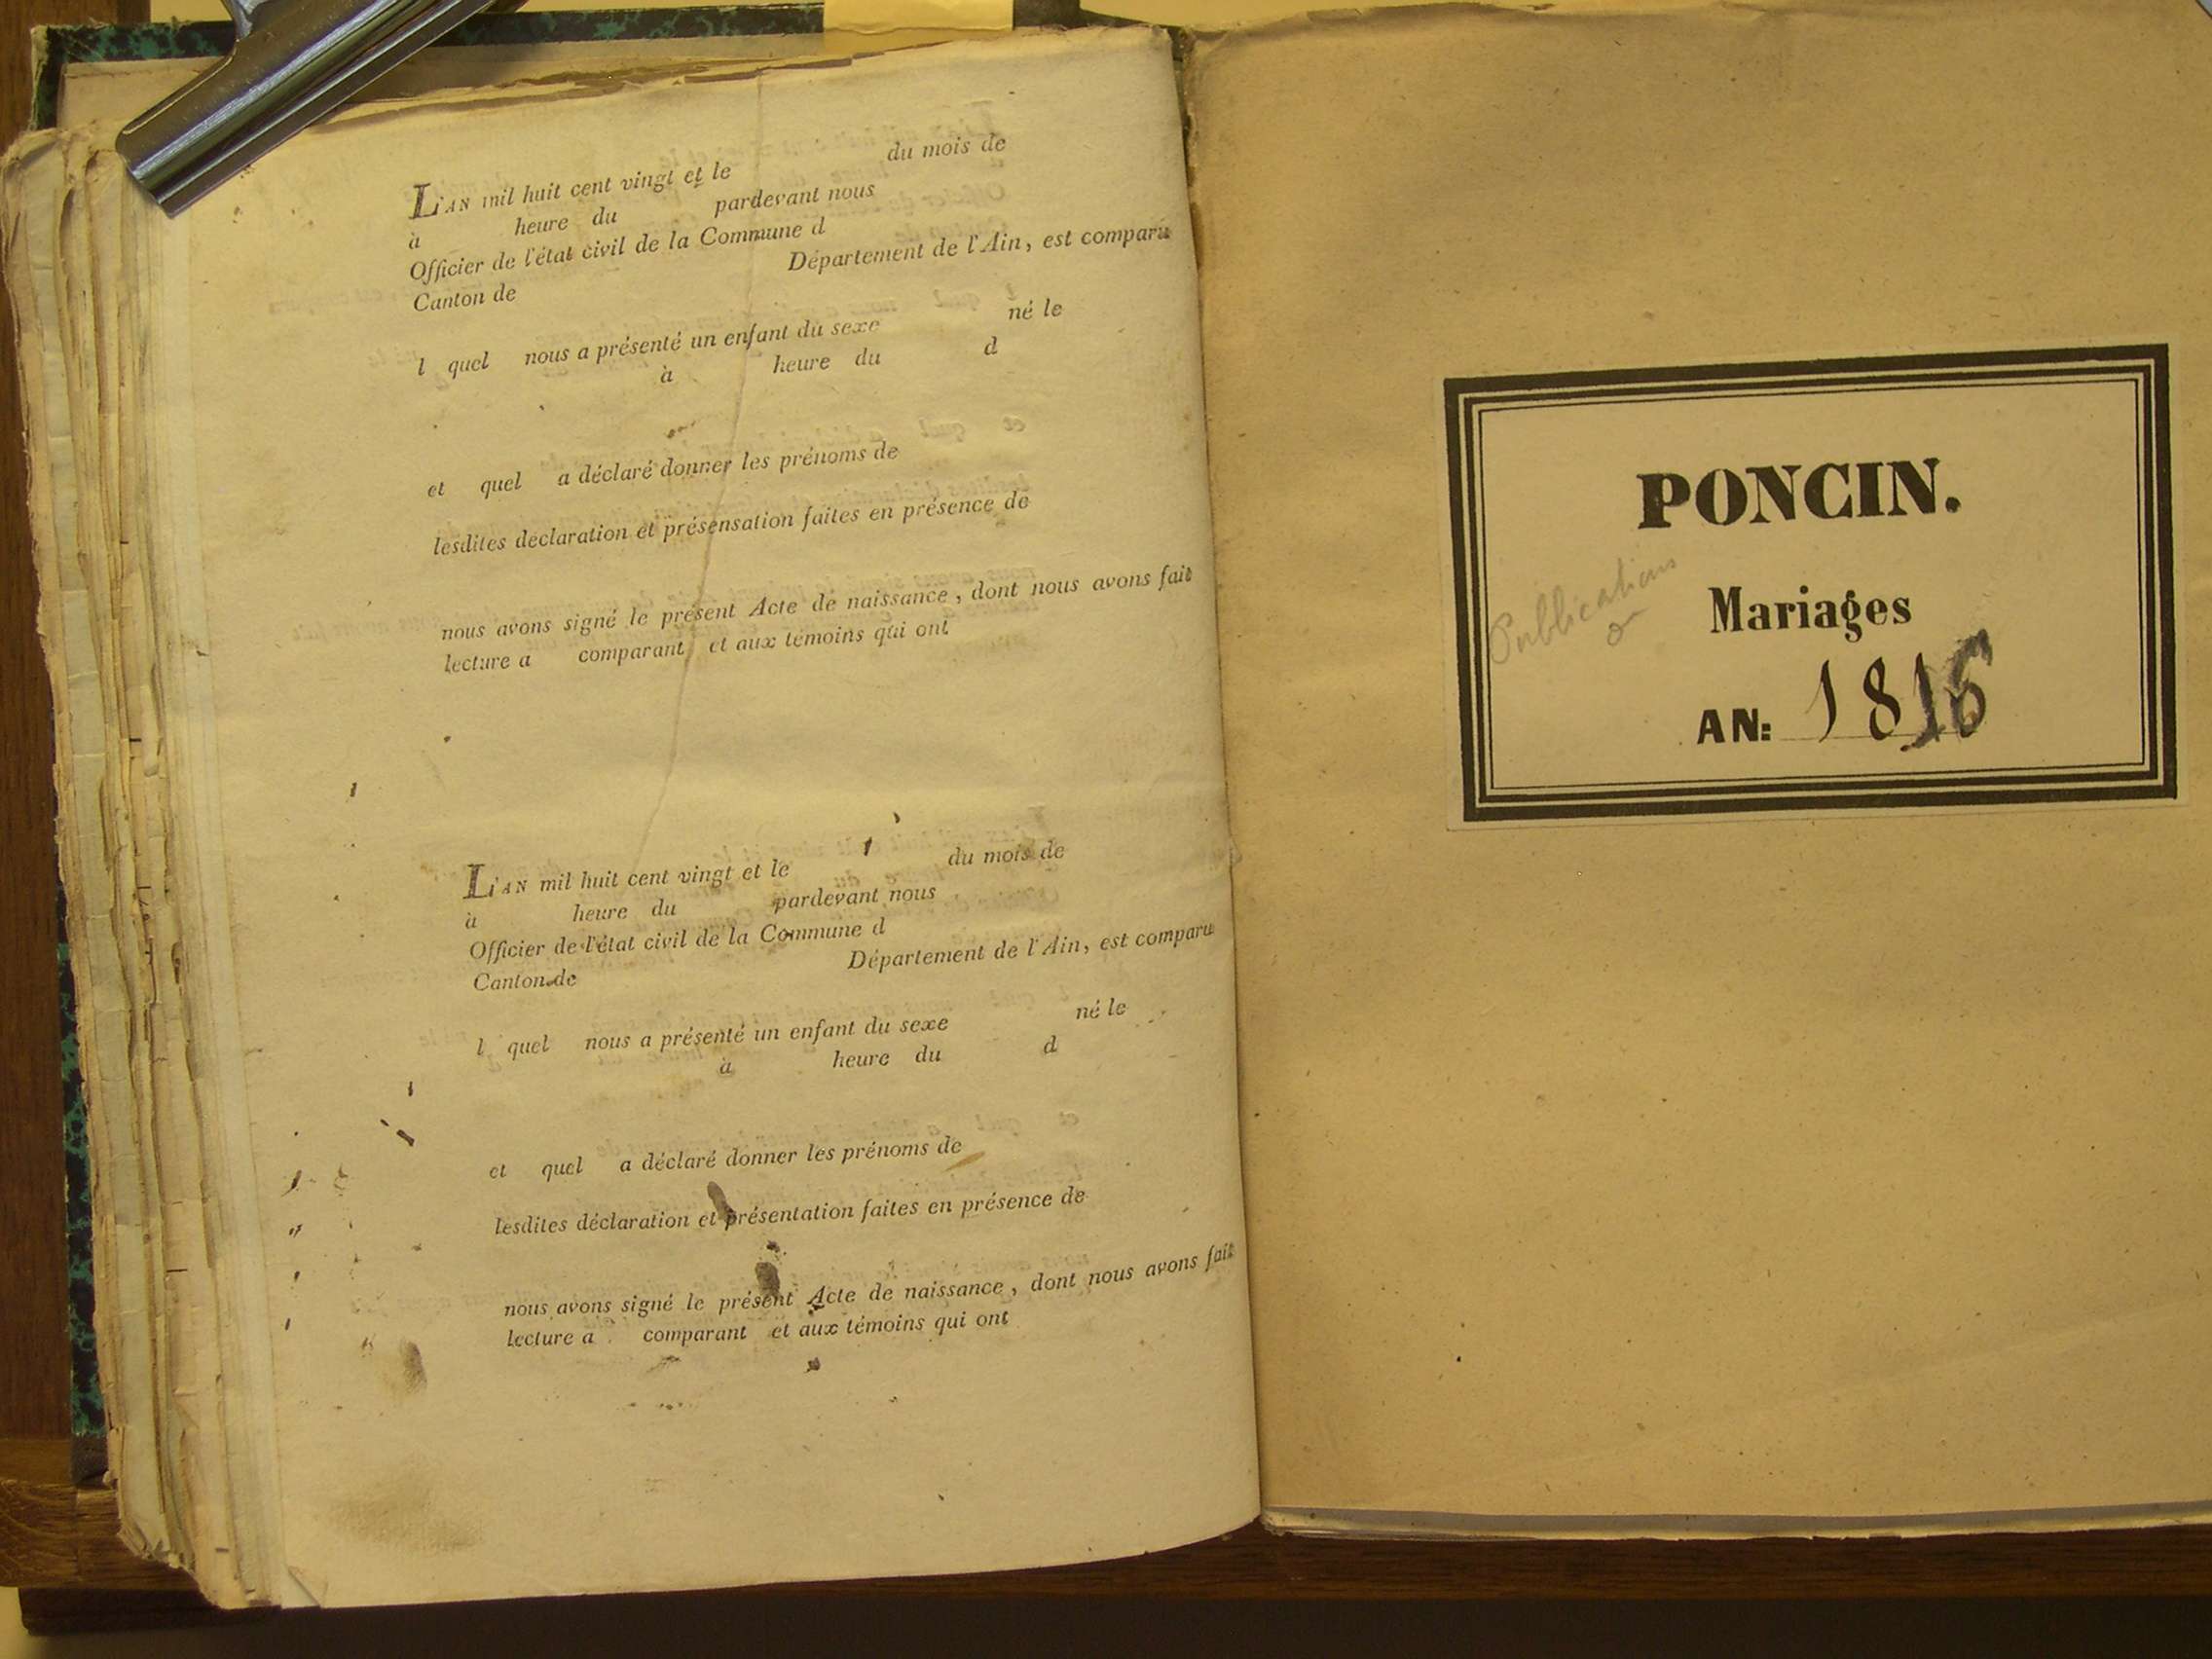 L'AN mil huit cent vingt et le du mois de
à heure du pardevant nous
Officier de l'état civil de la Commune d
Canton de Département de l'Ain, est comparu
l quel nous a présenté un enfant du sexe né le
à heure du d
et quel a déclaré donner les prénoms de
lesdites déclaration et présensation faites en présence de
nous avons signé le présent Acte de naissance, dont nous avons fait
lecture a comparant et aux témoins qui ont
L'AN mil huit cent vingt et le du mois de
à heure du pardevant nous
Officier de l'état civil de la Commune d
Canton de Département de l'Ain, est comparu
l quel nous a présenté un enfant du sexe né le
à heure du d
et quel a déclaré donner les prénoms de
lesdites déclaration et présentation faites en présence de
nous avons signé le présent Acte de naissance, dont nous avons fait
lecture a comparant et aux témoins qui ont
PONCIN.
Publications
Mariages
AN: 1816